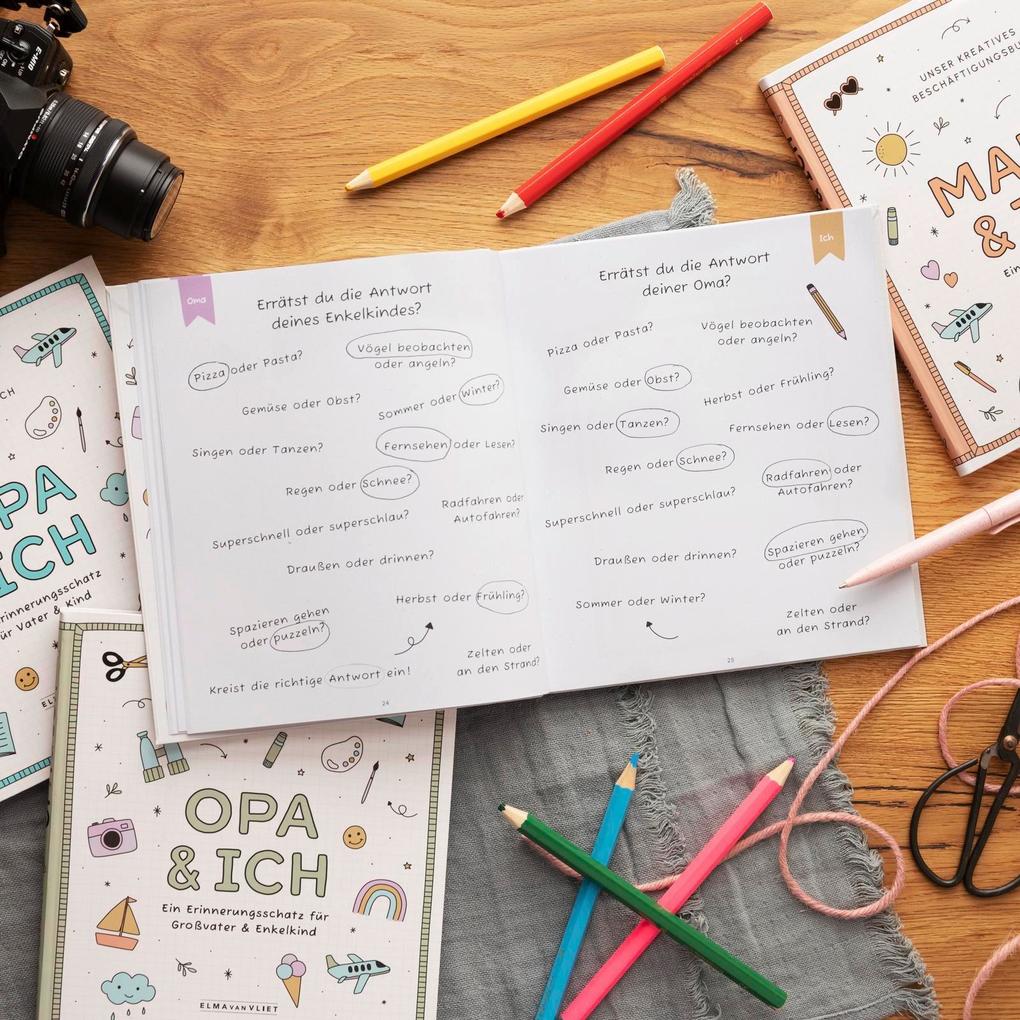 UNSER KREATIVES
MA
&
Ein
Oma
Errätst du die Antwort
deines Enkelkindes?
Pizza oder Pasta?
Vögel beobachten
oder angeln?
Gemüse oder Obst?
Sommer oder Winter?
Singen oder Tanzen?
Fernsehen oder Lesen?
Regen oder Schnee?
Radfahren oder
Autofahren?
Superschnell oder superschlau?
Draußen oder drinnen?
Herbst oder Frühling?
Spazieren gehen
oder puzzeln?
Zelten oder
an den Strand?
Kreist die richtige Antwort ein!
24
Ich
Errätst du die Antwort
deiner Oma?
Pizza oder Pasta?
Vögel beobachten
oder angeln?
Gemüse oder Obst?
Herbst oder Frühling?
Singen oder Tanzen?
Fernsehen oder Lesen?
Regen oder Schnee?
Radfahren oder
Autofahren?
Superschnell oder superschlau?
Draußen oder drinnen?
Spazieren gehen
oder puzzeln?
Sommer oder Winter?
Zelten oder
an den Strand?
25
PA
ICH
rinnerungsschatz
ür Vater & Kind
OPA
& ICH
Ein Erinnerungsschatz für
Großvater & Enkelkind
ELMA VAN VLIET